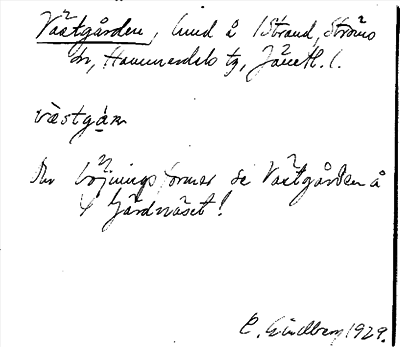 Västgården, hmd å 1 Strand, Ströms
sn, Hammerdals tg, Jämtl. l.
västgán
För böjningsformer se Västgården å
4 Gärdnäset!
E. Lindberg 1929.